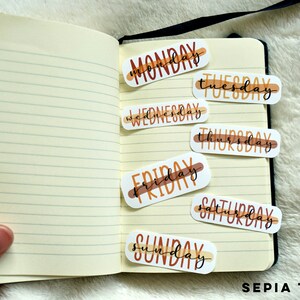 MONDAY
monday
TUESDAY
tuesday
WEDNESDAY
wednesday
THURSDAY
thursday
FRIDAY
friday
SATURDAY
saturday
SUNDAY
sunday
SEPIA